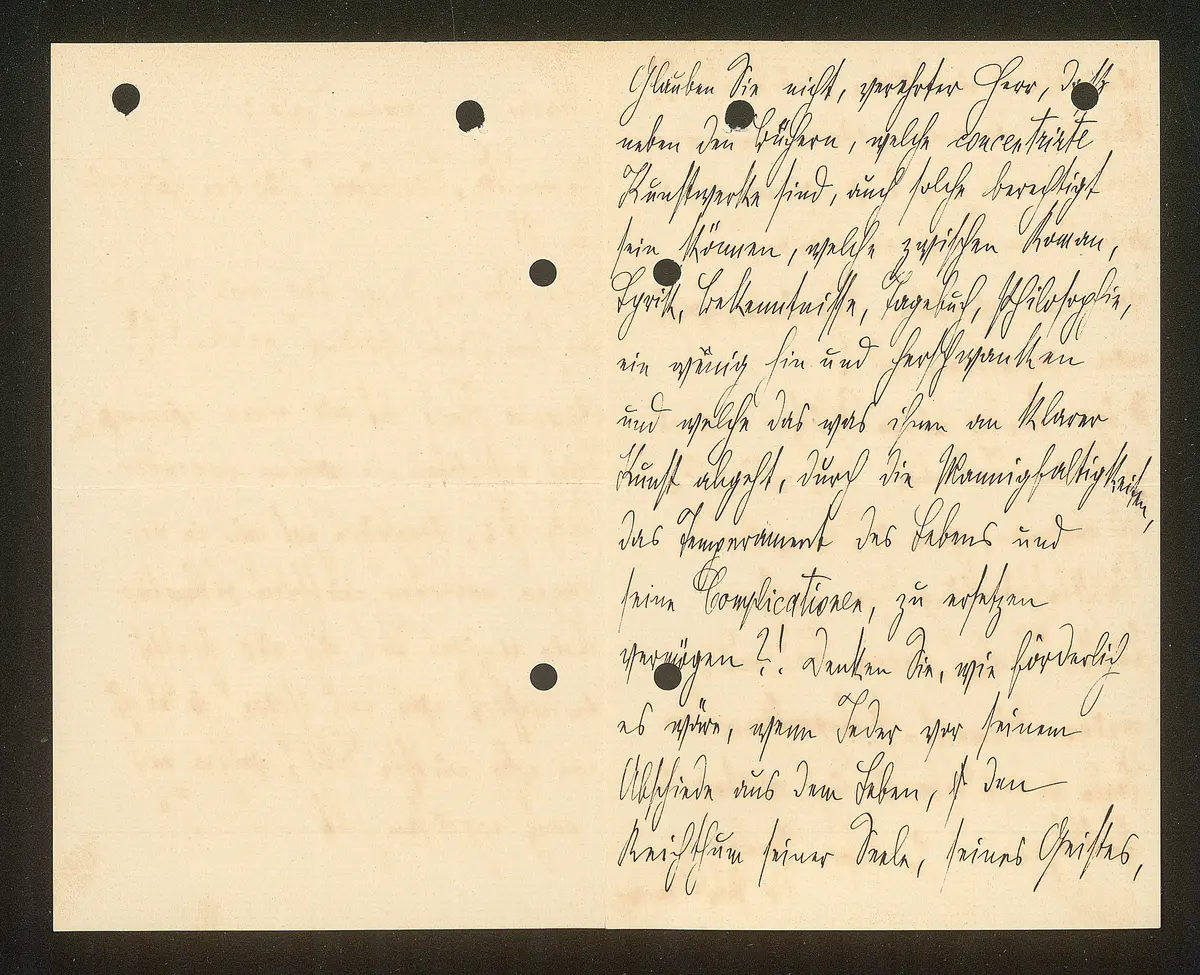 Glauben Sie nicht, verehrter Herr, daß
neben den Büchern, welche concentrirte
Kunstwerke sind, auch solche berechtigt
sein können, welche zwischen Roman,
Lyrik, Bekenntnisse, Tagebuch, Philosophie,
ein wenig hin und herschwanken
und welche das was ihnen an klarer
Kunst abgeht, durch die Mannigfaltigkeiten,
das Temperament des Lebens und
seine Complicationen, zu ersetzen
vermögen ?! Denken Sie, wie förderlich
es wäre, wenn Jeder vor seinem
Abschiede aus dem Leben, den
Reichthum seiner Seele, seines Geistes,